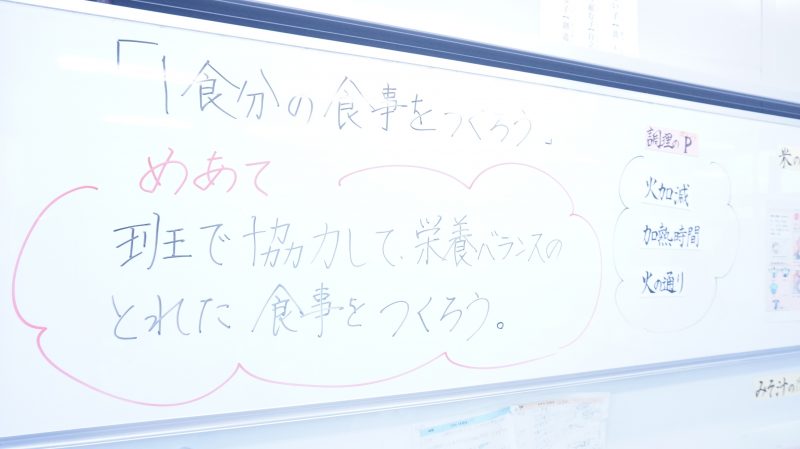 「1食分の食事をつくろう」
めあて
班で協力して、栄養バランスの
とれた食事をつくろう。
調理のP
火加減
加熱時間
火の通り
米の
みそ汁の